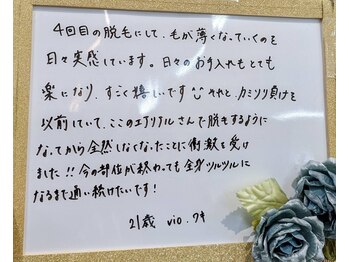 4回目の脱毛にして、毛が薄くなっていくのを
日々実感しています。日々のお手入れもとても
楽になり、すごく嬉しいです それと、カミソリ負けを
以前していて、ここのエアリアルさんで脱毛するように
なってから全然しなくなったことに衝激を受け
ました!!今の部位が終わっても全身ツルツルに
なるまで通い続けたいです!
21歳 vio.ワキ